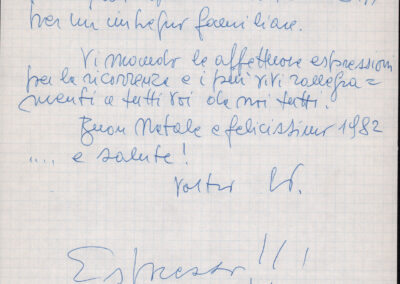 per un
familiare.
Vi mando le affettuose espressioni
per la ricorrenza e i più vivi rallegra=
menti a tutti voi da noi tutti.
Buon Natale e felicissimo 1982
.... e salute!
Espresso!!!